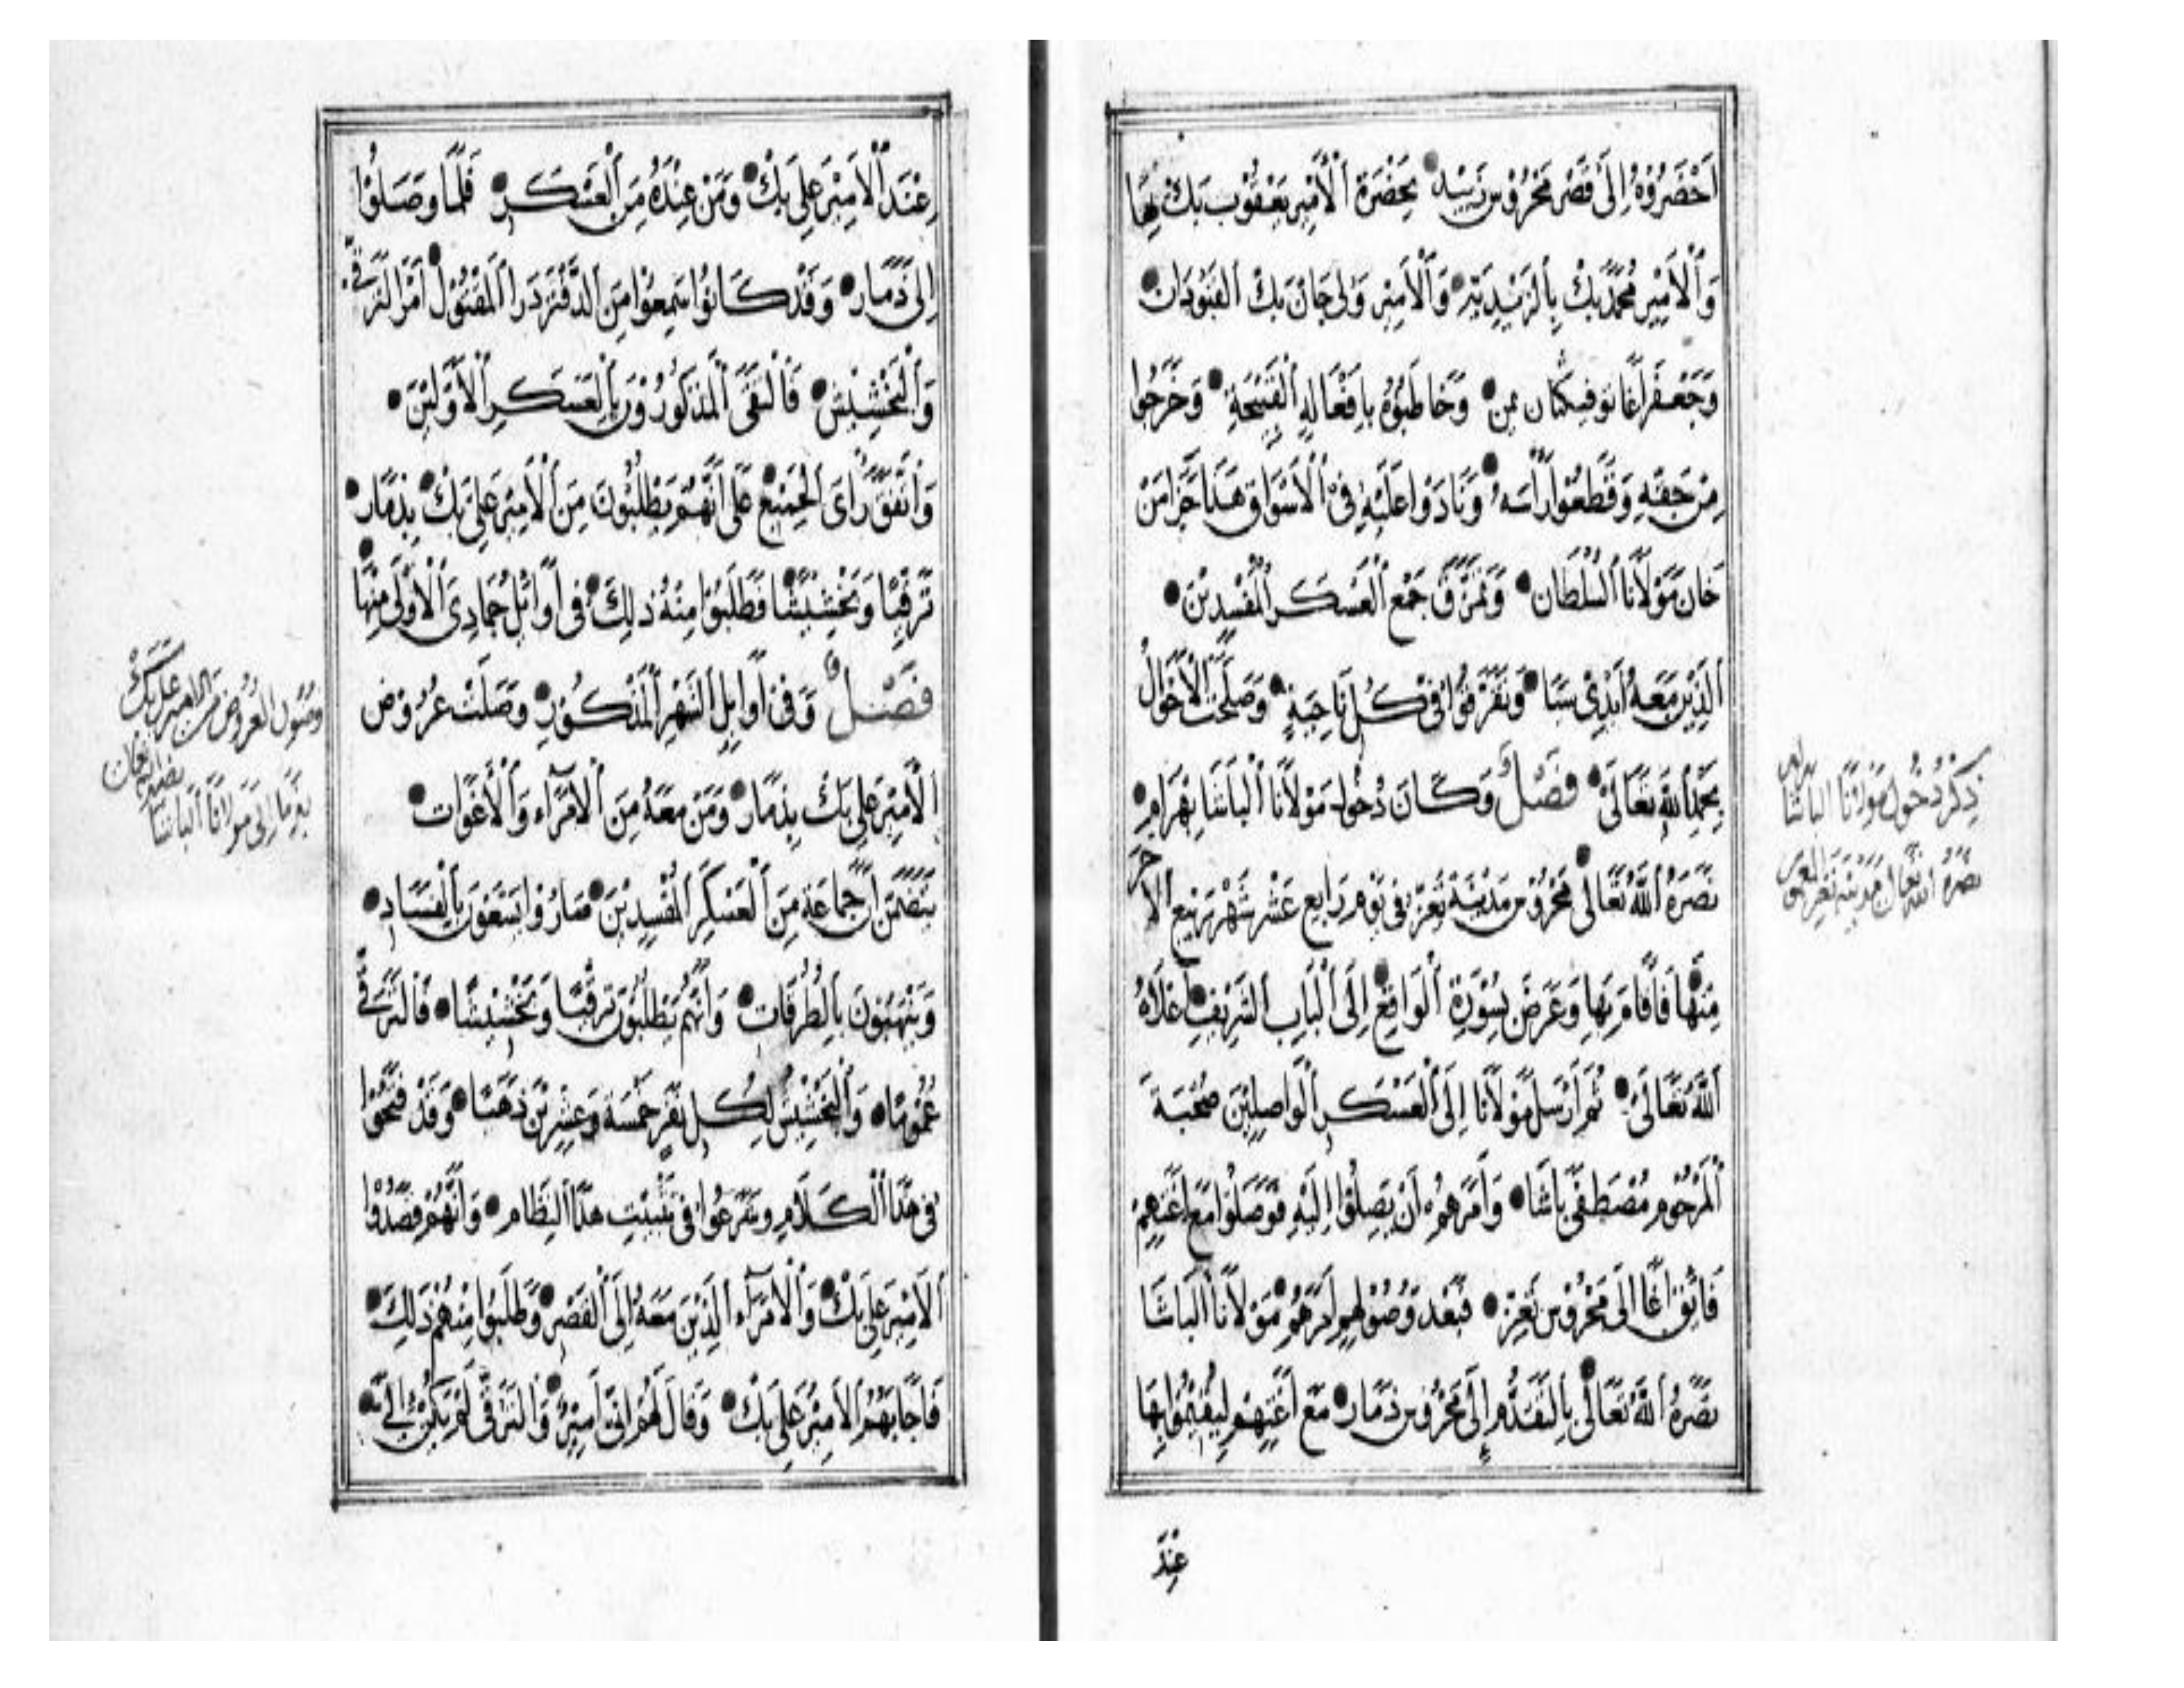 اَحْضَرُوْهُ اِلَى قَصْرِ مَحْرُوْسِ زَبِيْد بِحَضْرَةِ اَلْأَمِيْرِ يَعْقُوْب بَك بِهَا
وَاَلْأَمِيْرِ مُحَمَّد بَكْ بِاَلزَّيْدِيَّةِ وَاَلْأَمِيْرِ وَلِى جَان بَكْ اَلْقَبُوْدَان
وَجَعْفَر اَغَا نوفيكتان يمن وَخَاطَبُوْهُ بِاَفْعَالِهِ اَلْقَبِيْحَةِ وَخَرَجُوا
مِنْ حَقِّهِ وَقَطَعُوْا رَاْسَهُ وَنَادَوْا عَلَيْهِ فِى اَلْأَسْوَاقِ هَذَا جَزَا مَنْ
خَانَ مَوْلَانَا اَلسُّلْطَان وَتَمَزَّقَ جَمْعُ اَلْعَسْكَرِ اَلْمُفْسِدِيْنَ
اَلَّذِيْنَ مَعَهُ اَيْدِىْ سَبَا وَتَفَرَّقُوْا فِى كُلِّ نَاحِيَةٍ وَصَلَحَتْ اَلْأَحْوَالُ
بِحَمْدِ اَللّٰهِ تَعَالَى فَصْلٌ وَكَانَ دُخُوْلُ مَوْلَانَا اَلْبَاشَا بَهْرَام
نَصَرَهُ اَللّٰهُ تَعَالَى مَحْرُوْسَ مَدِيْنَةِ تَعِزّ فِى يَوْمِ رَابِعِ عَشَر شَهْرِ رَبِيْعِ الآخر
مِنْهَا فَاَقَامَ بِهَا وَعَرَضَ بِسُوْرَةِ اَلْوَاقِعِ اِلَى اَلْبَابِ اَلشَّرِيْفِ اَعْلَاهُ
اَللّٰهُ تَعَالَى ثُمَّ اَرْسَلَ مَوْلَانَا اِلَى اَلْعَسْكَرِ اَلْوَاصِلِيْنَ صُحْبَةَ
اَلْمَرْحُوْمِ مُصْطَفَى بَاشَا وَاَمَرَهُمْ اَنْ يَصِلُوْا اِلَيْهِ فَوَصَلُوْا مَعَ اَغَتِهِمْ
قَانِصُوْ اَغَا اِلَى مَحْرُوْسِ تَعِزّ فَبَعْدَ وُصُوْلِهِم اَمَرَهُمْ مَوْلَانَا اَلْبَاشَا
نَصَرَهُ اَللّٰهُ تَعَالَى بِاَلتَّقَدُّمِ اِلَى مَحْرُوْسِ ذَمَار مَعَ اَغَتِهِمْ لِيُقِيْمُوْا بِهَا
عِنْدَ
ذِكْرُ دُخُوْلِ مَوْلَانَا الباشا بهرام
نَصَرَهُ اَللّٰهُ تعالى مَدِيْنَة تعز
عِنْدَ اَلْأَمِيْرِ عَلِى بَكْ وَمَنْ عِنْدَهُ مِنَ اَلْعَسْكَرِ فَلَمَّا وَصَلُوْا
اِلَى ذَمَار وَقَدْ كَانُوْا سَمِعُوْا مِنَ اَلدَّفْتَرْدَار اَلْمَقْتُوْلِ اَمْرَ اَلتَّرَقِّى
وَاَلْبَخْشِيْش فَاَلْتَقَى اَلْمَذْكُوْرُوْنَ بِاَلْعَسْكَرِ اَلْأَوَّلِيْنَ
وَاَتَّفَقَ رَاىُ اَلْجَمِيْعِ عَلَى اَنَّهُمْ يَطْلُبُوْنَ مِنَ اَلْأَمِيْرِ عَلِى بَكْ بِذَمَار
تَرَقِيًّا وَبَخْشِيْشًا فَطَلَبُوْا مِنْهُ ذٰلِكَ فِى اَوَائِلِ جُمَادِىَ اَلْأُوْلَى مِنْهَا
فَصْلٌ وَفِى اَوَايِلِ اَلشَّهْرِ اَلْمَذْكُوْرِ وَصَلَتْ عُرُوْض
اَلْأَمِيْرِ عَلِى بَكْ بِذَمَار وَمَنْ مَعَهُ مِنَ اَلْأُمَرَآء وَاَلْأَغَوَات
يَتَضَمَّنُ اَنَّ جَمَاعَةً مِنَ اَلْعَسْكَرِ اَلْمُفْسِدِيْنَ صَارُوْا يَسْعَوْنَ بِاَلْفَسَادِ
وَيَنْهَبُوْنَ بِاَلطُّرُقَات وَاَنَّهُمْ يَطْلُبُوْنَ تَرَقِيًّا وَبَخْشِيْشًا فَاَلتَّرَقِّى
عُمُوْمًا وَاَلْبَخْشِيْش لِكُلِّ نَفَرٍ خَمْسَة وَعِشْرِيْنَ ذَهَبًا وَقَدْ فَتَحُوْا
فِى هَذَا اَلْكَلَامِ وَشَرَعُوْا فِى تَثْبِيْتِ هَذَا اَلنِّظَام وَاَنَّهُمْ قَصَدُوْا
اَلْأَمِيْرَ عَلِى بَكْ وَاَلْأُمَرَآء اَلَّذِيْنَ مَعَهُ اِلَى اَلْقَصْرِ وَطَلَبُوْا مِنْهُمْ ذٰلِكَ
فَاَجَابَهُمُ اَلْأَمِيْرُ عَلِى بَكْ وَقَالَ لَهُمْ اِنِّى اَمِيْرٌ وَاَلتَّرَقِّى لَمْ يَكُنْ اِلَىَّ
وصُول العُرُوْض من الامير علي بك
بِذَمَار اِلَى مَوْلَانَا اَلْبَاشَا